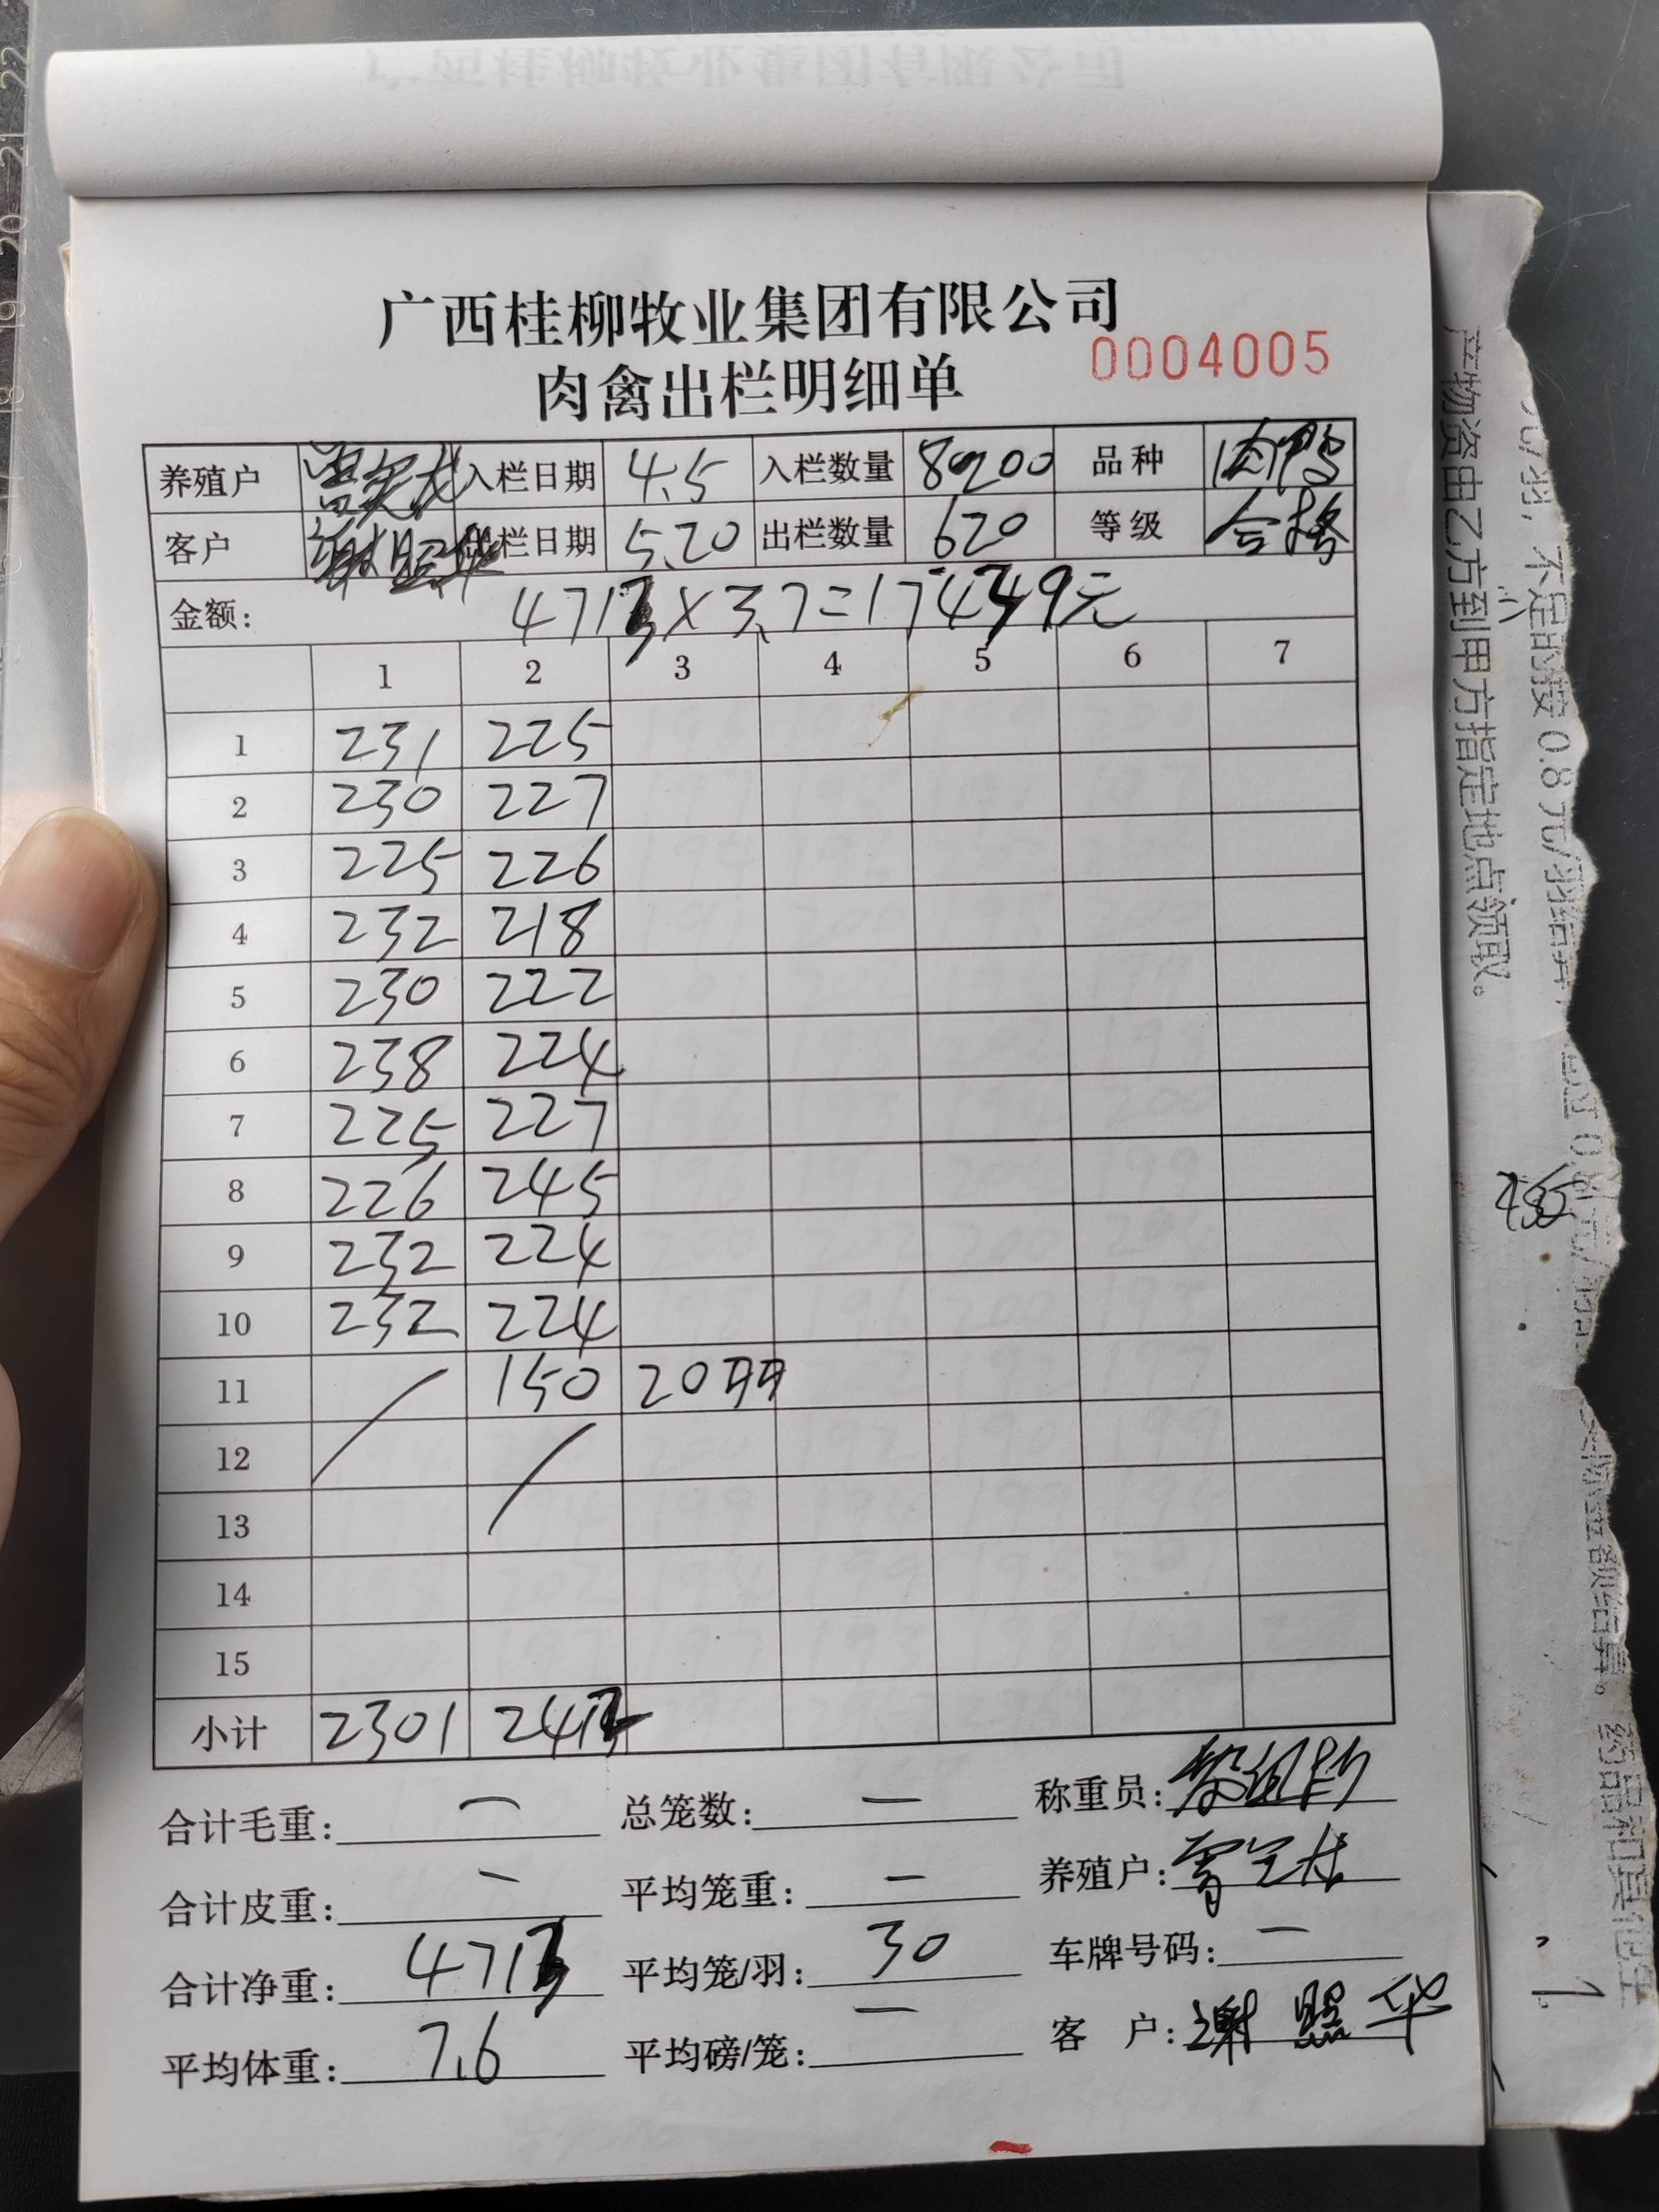 广西桂柳牧业集团有限公司
肉禽出栏明细单 0004005
养殖户 入栏日期 4.5 入栏数量 品种 肉鸭
客户 谢照华 栏日期 5.20 出栏数量 620 等级 合格
金额: 4713×3.7=17439元
1 2 3 4 5 6 7
1 231 225
2 230 227
3 225 226
4 232 218
5 230 222
6 238 224
7 225 227
8 226 245
9 232 224
10 232 224
11 150 20
12
13
14
15
小计 2301 2412
合计毛重: — 总笼数: — 称重员:
合计皮重: — 平均笼重: — 养殖户:
合计净重: 4713 平均笼/羽: 30 车牌号码: —
平均体重: 7.6 平均磅/笼: — 客 户: 谢照华
元/羽, 不足的按 0.8 元/羽结算
产物资由乙方到甲方指定地点领取。
22
21
20
19
18